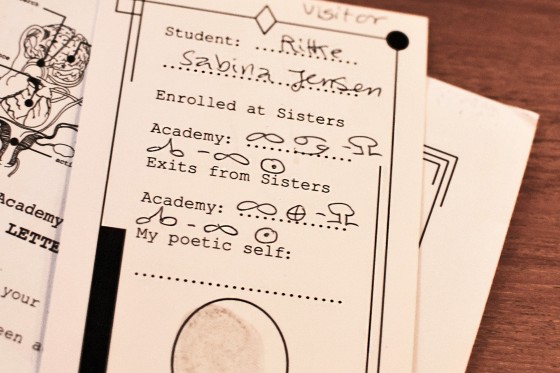 Visitor
Student: Rikke
Sabina Jensen
Enrolled at Sisters
Academy:
Exits from Sisters
Academy:
My poetic self:
Academy
LETTE
your
een a